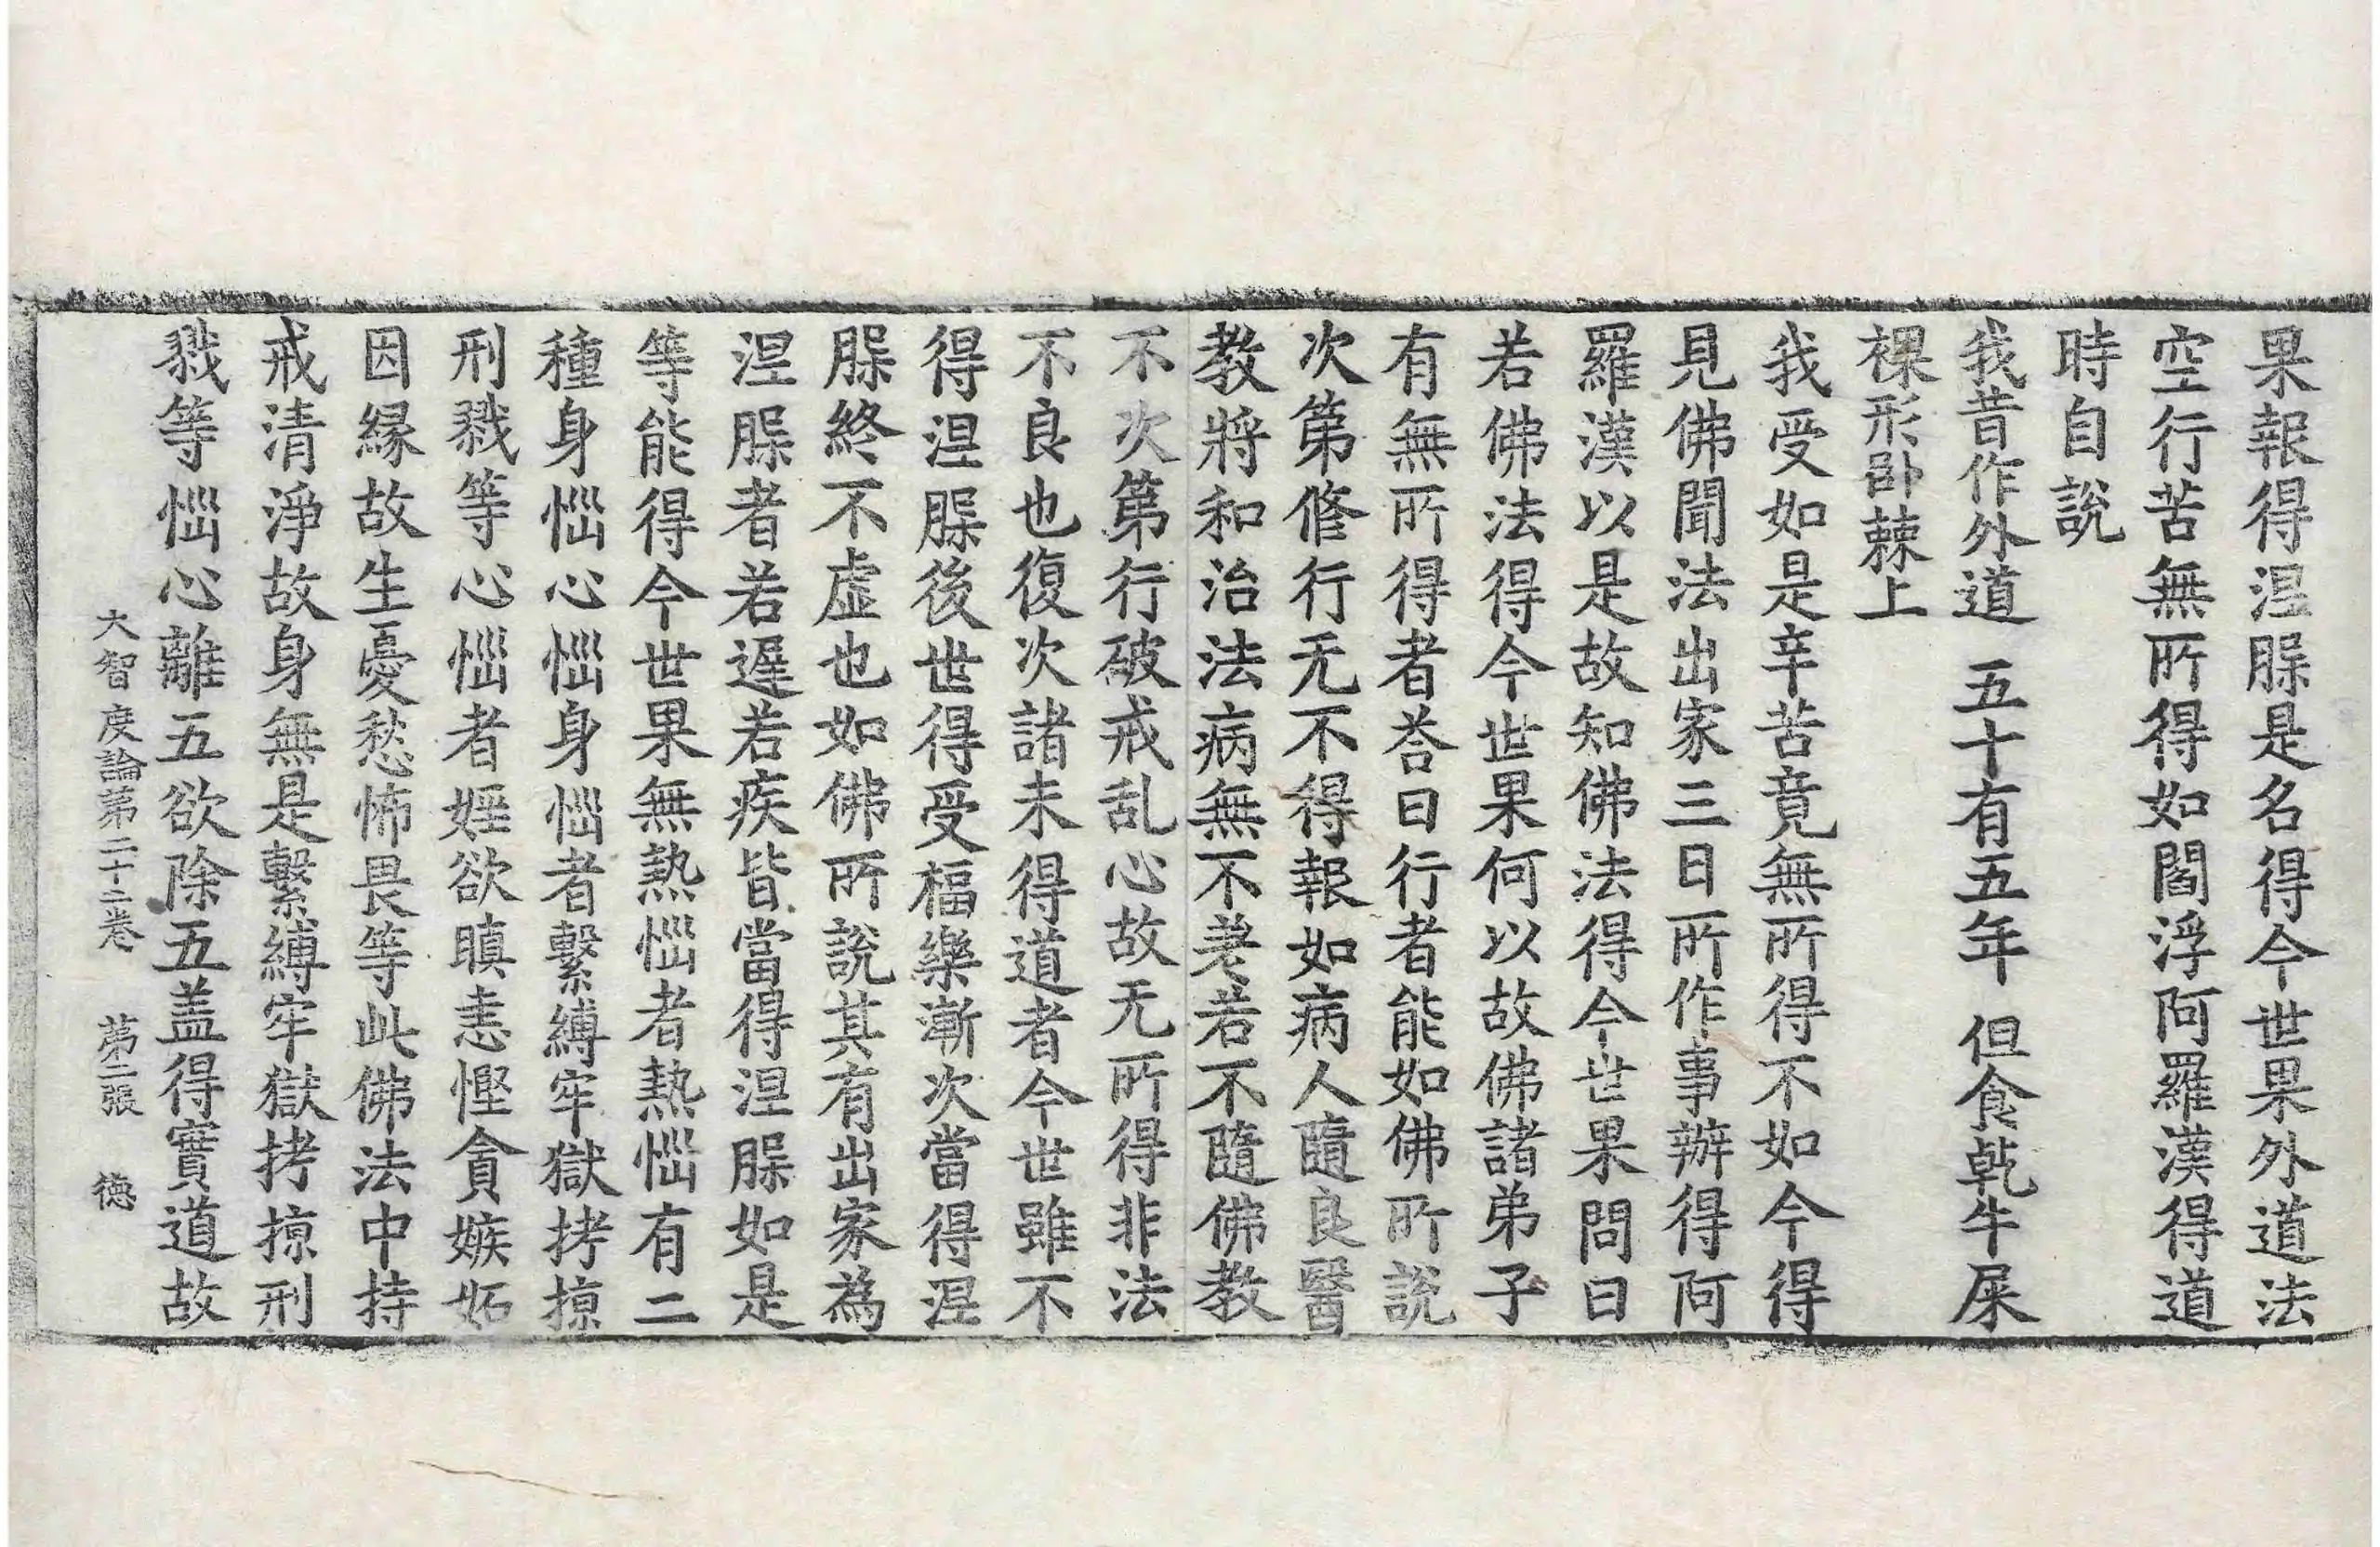 果報得涅脲是名得今世果外道法
空行苦無所得如閻浮阿羅漢得道
時自說
我昔作外道　五十有五年　但食乹牛屎
裸形卧棘上
我受如是辛苦竟無所得不如今得
見佛聞法出家三日所作事辦得阿
羅漢以是故知佛法得今世果問曰
若佛法得今世果何以故佛諸弟子
有無所得者荅曰行者能如佛所說
次第修行无不得報如病人隨良醫
教將和治法病無不差若不隨佛教
不次第行破戒乱心故无所得非法
不良也復次諸未得道者今世雖不
得涅脲後世得受福樂漸次當得涅
脲終不虛也如佛所說其有出家為
涅脲者若遲若疾皆當得涅脲如是
等能得今世果無熱惱者熱惱有二
種身惱心惱身惱者繫縛牢獄拷掠
刑戮等心惱者婬欲瞋恚慳貪嫉妬
因緣故生憂愁怖畏等此佛法中持
戒清淨故身無是繫縛牢獄拷掠刑
戮等惱心離五欲除五盖得實道故
大智度論第二十二卷　第二張　德